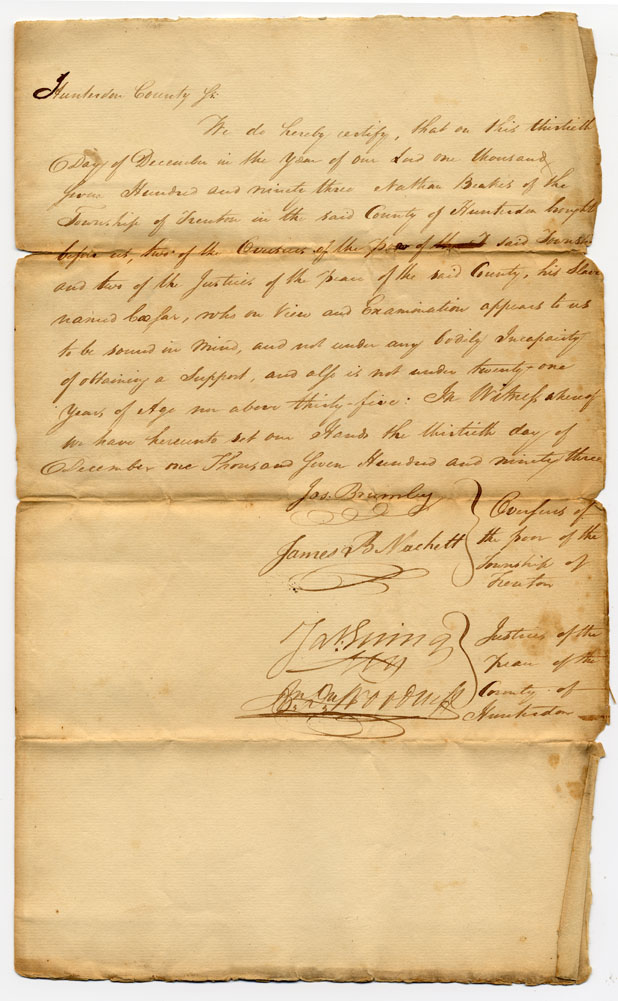 Hunterdon County Ss:
We do hereby certify, that on this thirtieth
Day of December in the Year of our Lord one thousand
Seven Hundred and ninete three Nathan Beakes of the
Township of Trenton in the said County of Hunterdon brought
before us, two of the Overseers of the poor of the said Township
and two of the Justices of the peace of the said County, his Slave
named Cæsar, who on View and Examination appears to us
to be sound in Mind, and not under any bodily Incapacity
of obtaining a Support, and also is not under twenty-one
Years of Age nor above thirty-five: In Witness whereof
we have hereunto set our Hands the thirtieth day of
December one Thousand Seven Hundred and ninety three
Jos. Brumley
James B Machett
Overseers of
the poor of the
Township of
Trenton
Justices of the
peace of the
County of
Hunterdon